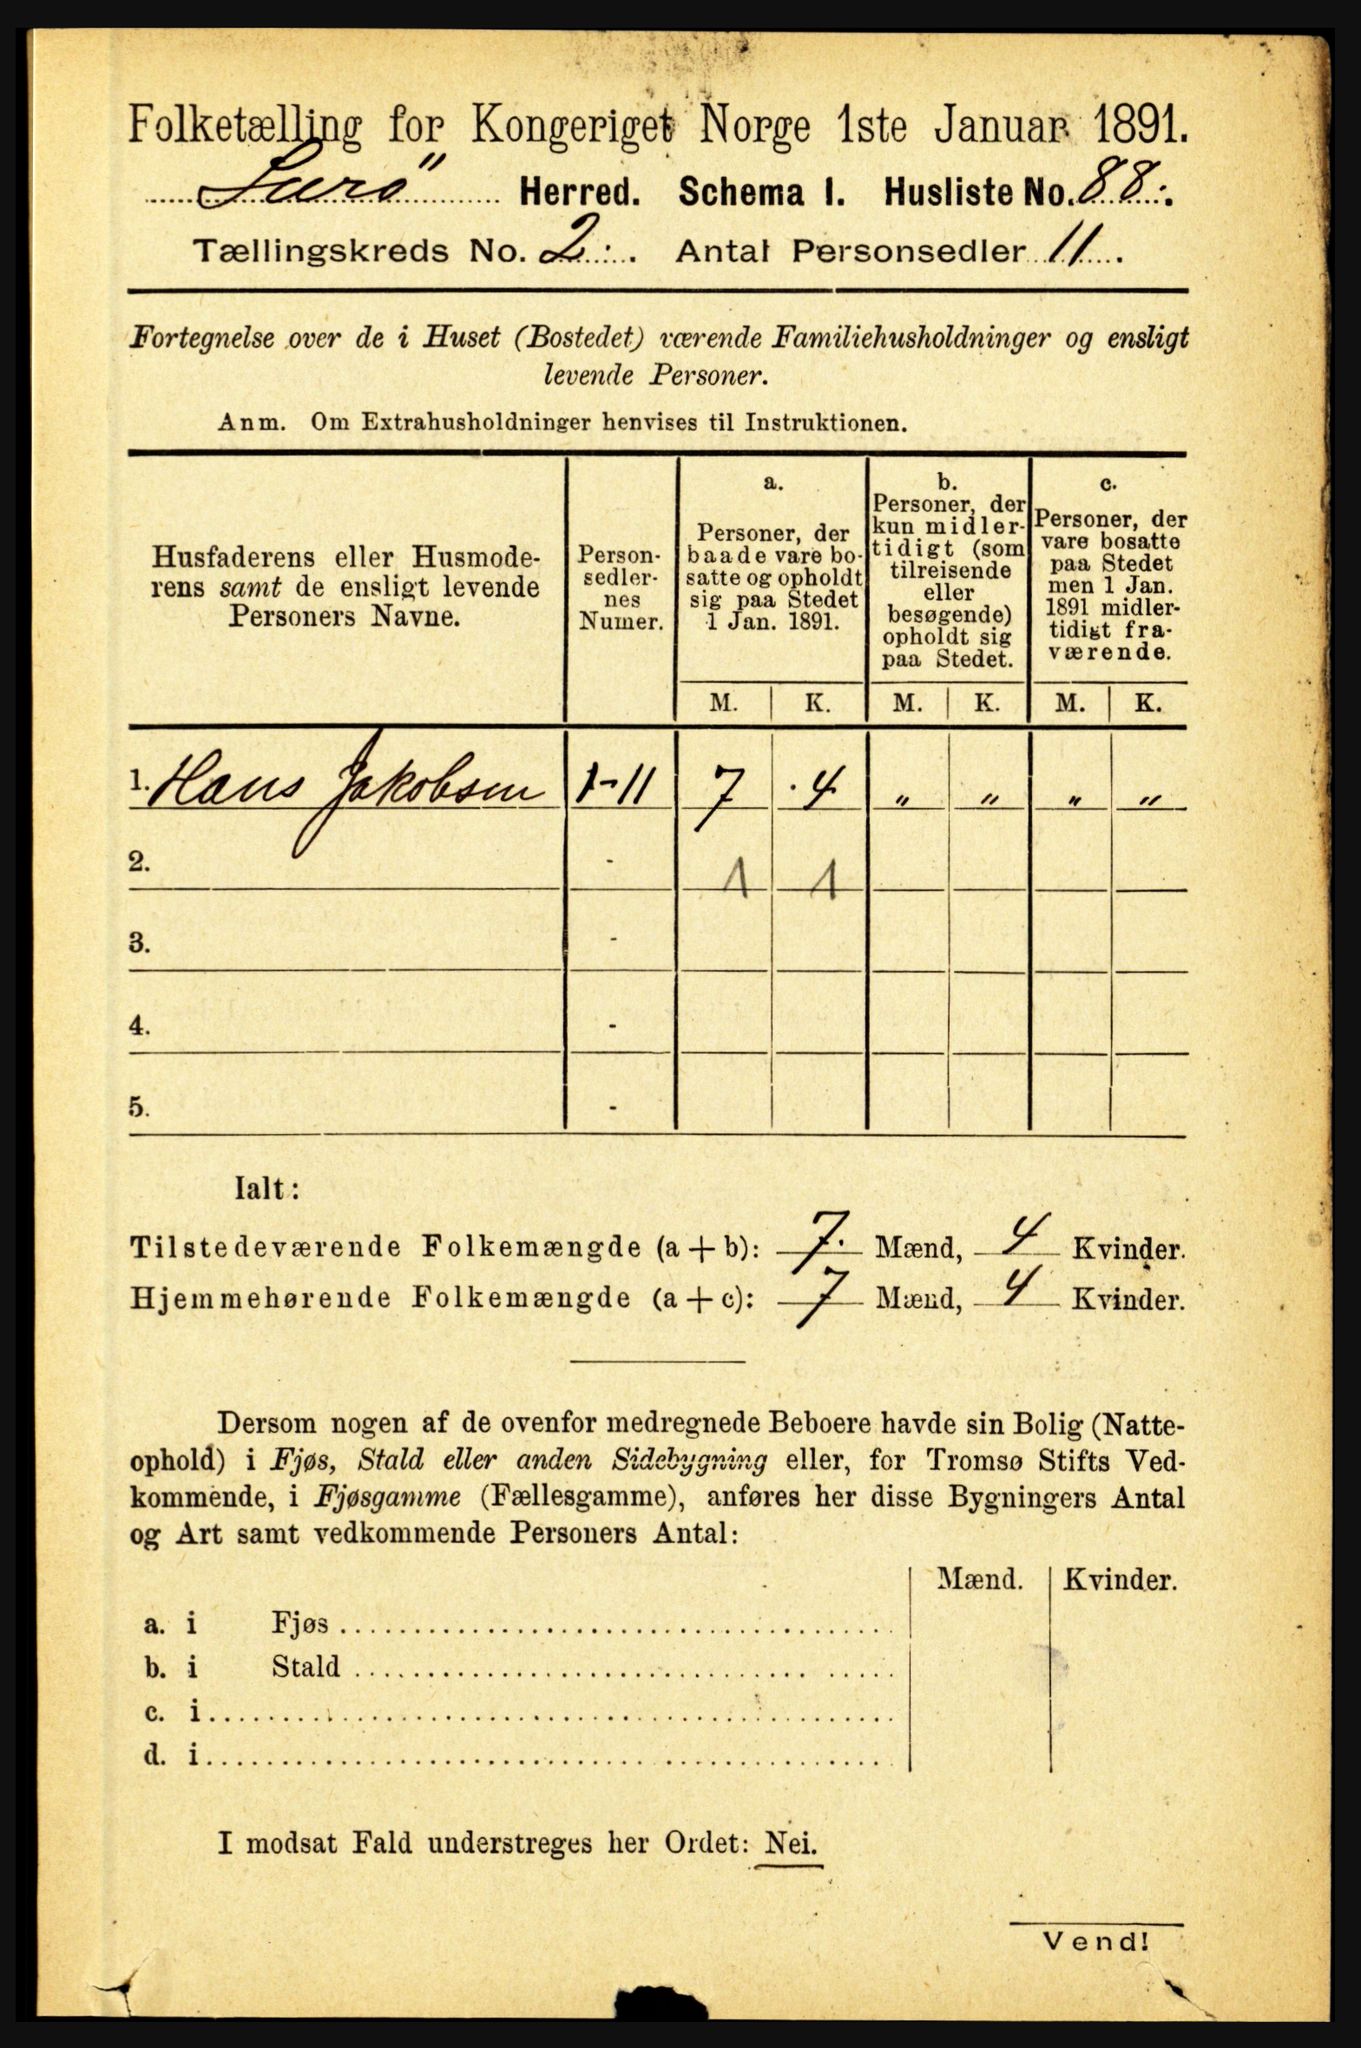 Folketælling for Kongeriget Norge 1ste Januar 1891.
Lurö Herred. Schema I. Husliste No. 88.
Tællingskreds No. 2. Antal Personsedler 11.
Fortegnelse over de i Huset (Bostedet) værende Familiehusholdninger og ensligt
levende Personer.
Anm. Om Extrahusholdninger henvises til Instruktionen.
Husfaderens eller Husmode-
rens samt de ensligt levende
Personers Navne.
Person-
sedler-
nes
Numer.
a.
Personer, der
baade vare bo-
satte og opholdt
sig paa Stedet
1 Jan. 1891.
b.
Personer, der
kun midler-
tidigt (som
tilreisende
eller
besøgende)
opholdt sig
paa Stedet.
c.
Personer, der
vare bosatte
paa Stedet
men 1 Jan.
1891 midler-
tidigt fra-
værende.
M. K. M. K. M. K.
1. Hans Jakobsen 1-11 7 4 " " " "
2. - 1 1
3. -
4. -
5. -
Ialt:
Tilstedeværende Folkemængde (a+b): 7. Mænd, 4 Kvinder.
Hjemmehørende Folkemængde (a+c): 7 Mænd, 4 Kvinder.
Dersom nogen af de ovenfor medregnede Beboere havde sin Bolig (Natte-
ophold) i Fjøs, Stald eller anden Sidebygning eller, for Tromsø Stifts Ved-
kommende, i Fjøsgamme (Fællesgamme), anføres her disse Bygningers Antal
og Art samt vedkommende Personers Antal:
Mænd. Kvinder.
a. i Fjøs
b. i Stald
c. i
d. i
I modsat Fald understreges her Ordet: Nei.
Vend!